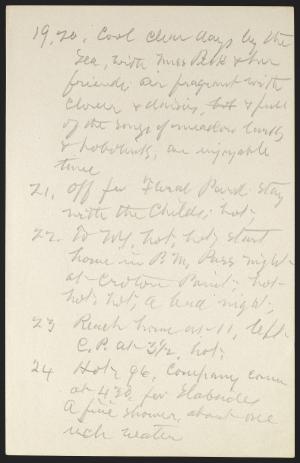 19, 20, Cool clear days by the
Sea, with Miss B & her
friends; air fragrant with
clover & daisies, & full
of the songs of meadow larks
& bobolinks, an enjoyable
time
21, Off for Floral Park stay
with the Childs; hot;
22, To NY, hot, hot; start
home in P.M, Pass night
at Croton Point; hot
hot, hot, A bad night;
23 Reach home at 11, left
C. P. at 3½, hot;
24 Hot, 96, Company came
at 4 30 for Slabsides
A fine shower, about one
inch water